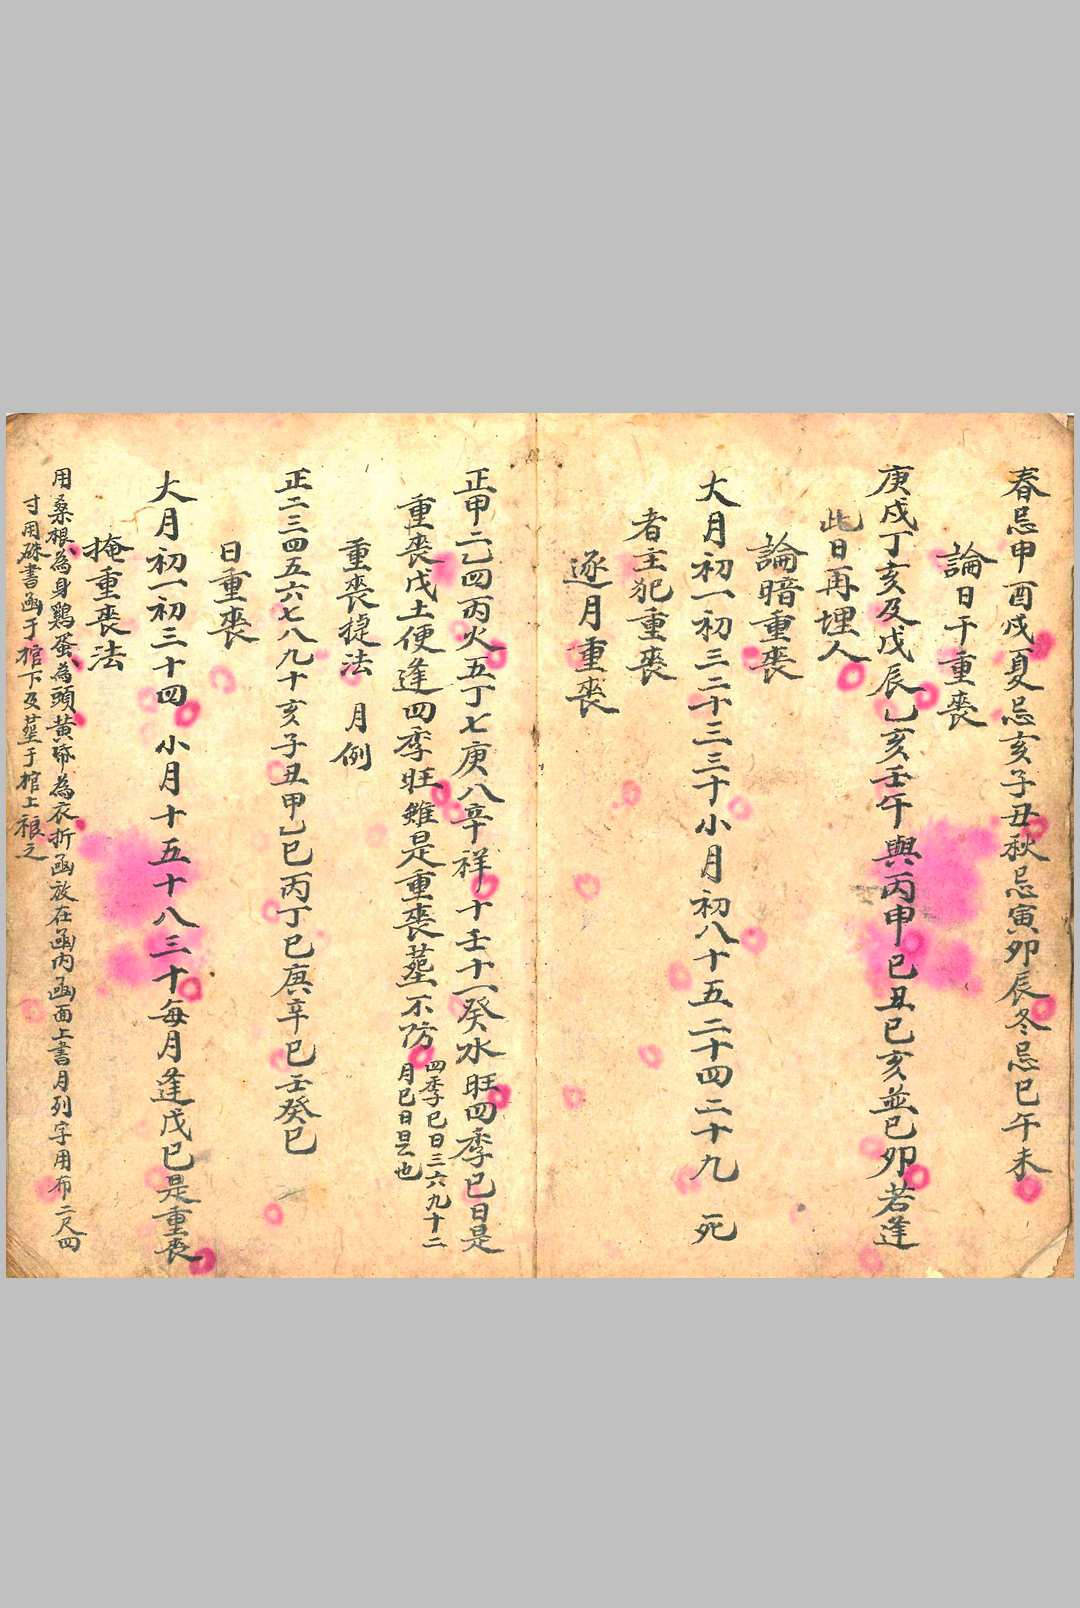 春忌申酉戌夏忌亥子丑秋忌寅卯辰冬忌巳午未
論日干重喪
庚戌丁亥及戊辰乙亥壬午與丙申巳丑巳亥並巳卯若逢
此日再埋人
論暗重喪
大月初一初三二十三三十小月初八十五二十四二十九 死
者主犯重喪
逐月重喪
正甲二乙四丙火五丁七庚八辛祥十壬十一癸水旺四季巳日是
重喪戊土便逢四季旺雖是重喪塟不防 四季巳日三六九十二
月巳日是也
重喪捷法 月例
正二三四五六七八九十亥子丑甲乙巳丙丁巳庚辛巳壬癸巳
日重喪
大月初一初三十四 小月十五十八三十每月逢戊巳是重喪
掩重喪法
用桑根為身鷄蛋為頭黃帋為衣折函放在函內函面上書月列字用布二尺四
寸用硃書函于棺下及塟于棺上之